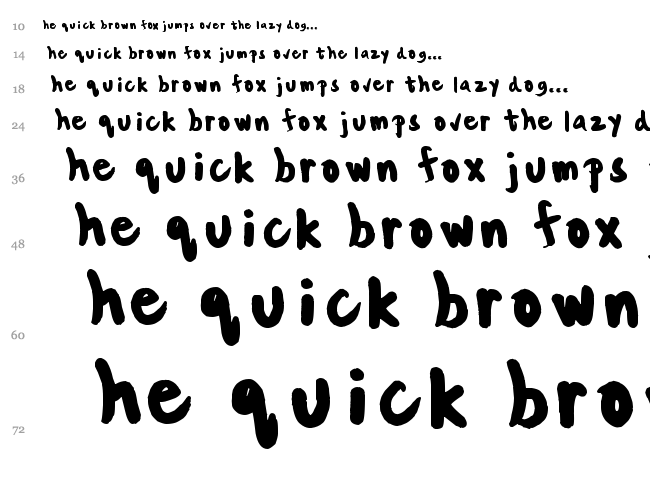 10 he quick brown fox jumps over the lazy dog...
14 he quick brown fox jumps over the lazy dog...
18 he quick brown fox jumps over the lazy dog...
24 he quick brown fox jumps over the lazy d
36 he quick brown fox jumps
48 he quick brown fox
60 he quick brown
72 he quick bro